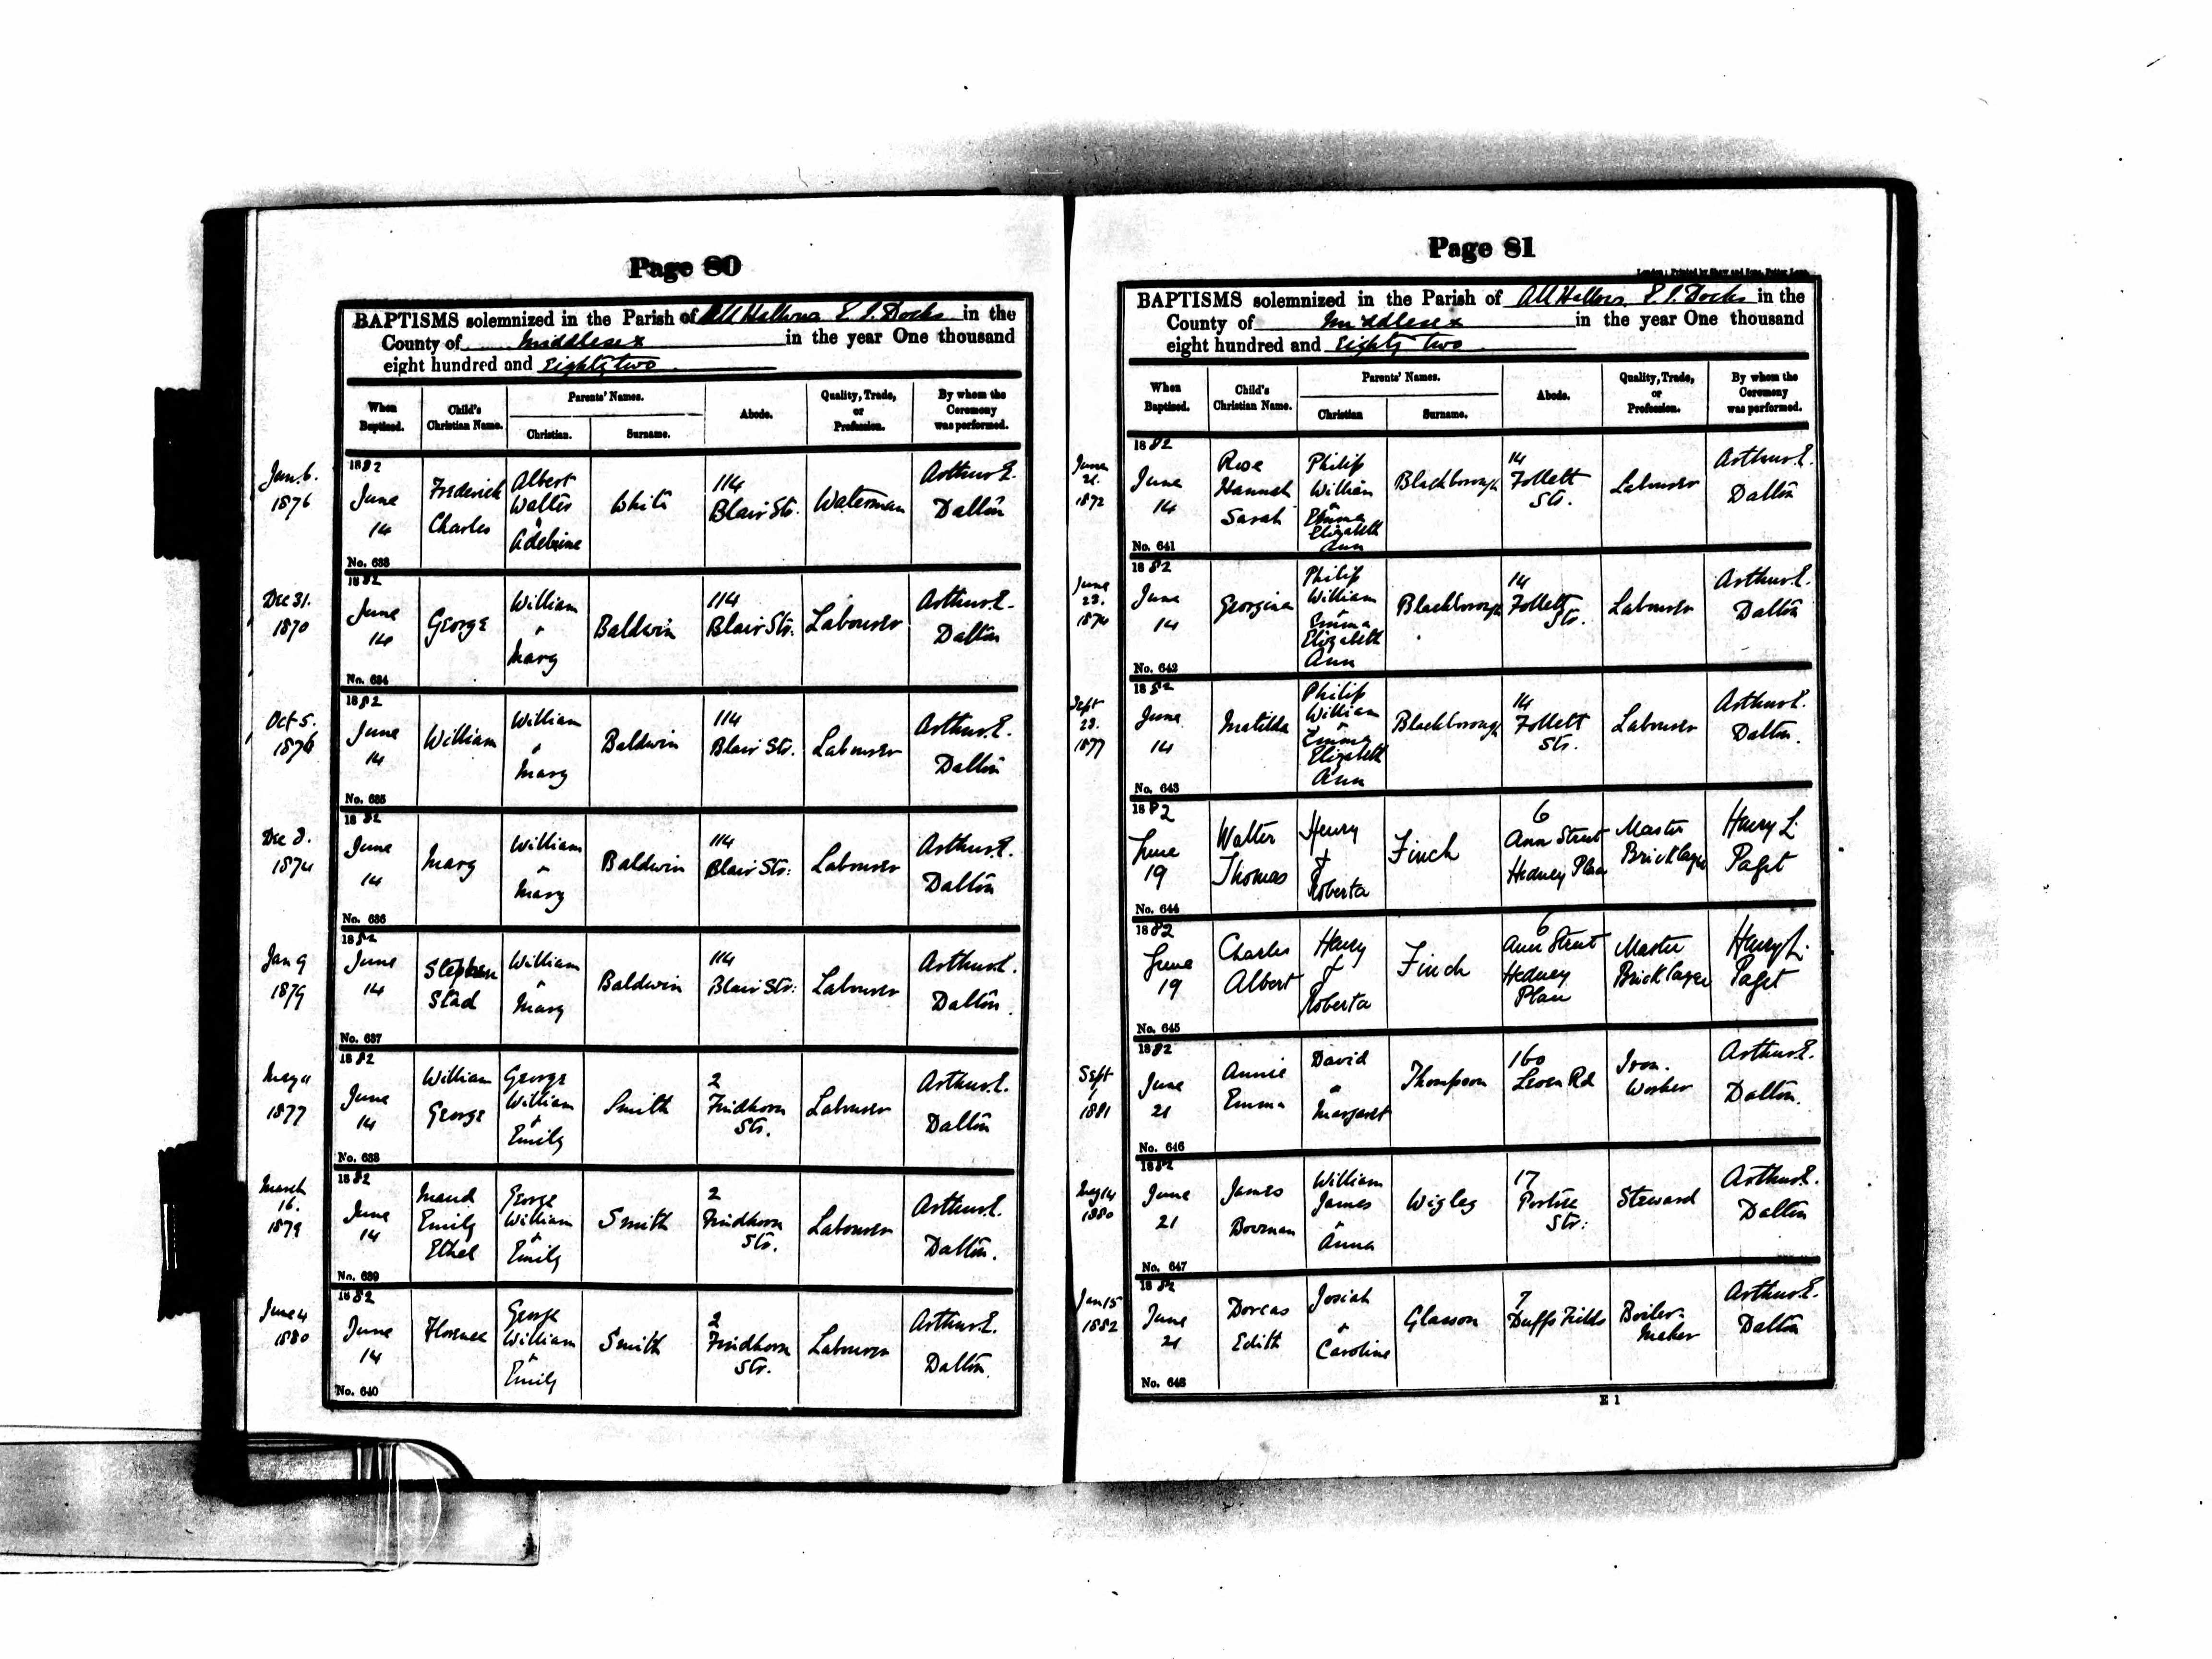 Page 80
BAPTISMS solemnized in the Parish of All Hallows E. I. Docks in the
County of Middlesex in the year One thousand
eight hundred and Eighty two
When Baptized.
Child's Christian Name.
Parents' Names.
Christian.
Surname.
Abode.
Quality, Trade, or Profession.
By whom the Ceremony was performed.
Jan. 6. 1876
1882 June 14
Frederick Charles
Albert Walter & Adeline
White
114 Blair Str.
Waterman
Arthur E. Dalton
No. 633
Dec 31. 1870
1882 June 14
George
William & Mary
Baldwin
114 Blair Str.
Labourer
Arthur E. Dalton
No. 634
Oct 5. 1876
1882 June 14
William
William & Mary
Baldwin
114 Blair Str.
Labourer
Arthur E. Dalton
No. 635
Dec 8. 1874
1882 June 14
Mary
William & Mary
Baldwin
114 Blair Str:
Labourer
Arthur E. Dalton
No. 636
Jan 9 1879
1882 June 14
Stephen
William & Mary
Baldwin
114 Blair Str:
Labourer
Arthur E. Dalton.
No. 637
May 11 1877
1882 June 14
William George
George William & Emily
Smith
2 Findhorn Str.
Labourer
Arthur E. Dalton
No. 638
March 16. 1879
1882 June 14
Maud Emily Ethel
George William & Emily
Smith
2 Findhorn Str.
Labourer
Arthur E. Dalton.
No. 639
June 4 1880
1882 June 14
Florence
George William & Emily
Smith
2 Findhorn Str.
Labourer
Arthur E. Dalton.
No. 640
Page 81
London: Printed by Shaw and Sons, Fetter Lane.
BAPTISMS solemnized in the Parish of All Hallows E. I. Docks in the
County of Middlesex in the year One thousand
eight hundred and Eighty two
When Baptized.
Child's Christian Name.
Parents' Names.
Christian
Surname.
Abode.
Quality, Trade, or Profession.
By whom the Ceremony was performed.
June 21. 1872
1882 June 14
Rose Hannah Sarah
Philip William & Emma Elizabeth Ann
Blackborough
14 Follett Str.
Labourer
Arthur E. Dalton
No. 641
June 23. 1874
1882 June 14
Georgina
Philip William & Emma Elizabeth Ann
Blackborough
14 Follett Str.
Labourer
Arthur E. Dalton
No. 642
Sept 23. 1877
1882 June 14
Matilda
Philip William & Emma Elizabeth Ann
Blackborough
14 Follett Str.
Labourer
Arthur E. Dalton.
No. 643
1882 June 19
Walter Thomas
Henry & Roberta
Finch
6 Ann Street
Master Bricklayer
Henry L. Paget
No. 644
1882 June 19
Charles Albert
Henry & Roberta
Finch
6 Ann Street
Master Bricklayer
Henry L. Paget
No. 645
Sept 1 1881
1882 June 21
Annie Emma
David & Margaret
Thompson
160 Leven Rd
Iron. Worker
Arthur E. Dalton.
No. 646
May 14 1880
1882 June 21
James Bowman
William James & Anna
Wigley
17 Portree Str:
Steward
Arthur E. Dalton
No. 647
Jan 15 1882
1882 June 21
Dorcas Edith
Josiah & Caroline
Glasson
7 Duffs Fields
Boiler-Maker
Arthur E. Dalton
No. 648
E 1